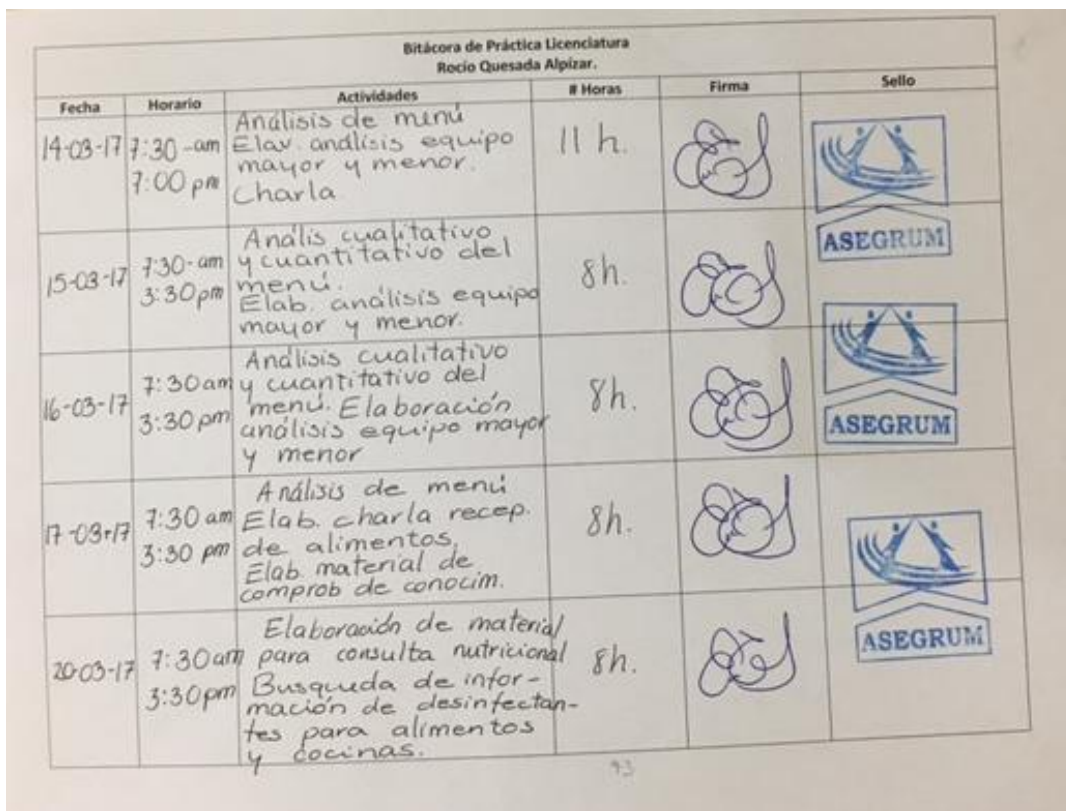 Bitácora de Práctica Licenciatura
Rocío Quesada Alpízar.
Fecha Horario Actividades # Horas Firma Sello
14-03-17 7:30-am 7:00 pm 11 h.
Análisis de menú
Elav. análisis equipo
mayor y menor.
Charla
ASEGRUM
15-03-17 7:30-am 3:30 pm 8h.
Anális cualitativo
y cuantitativo del
menú.
Elab. análisis equipo
mayor y menor.
16-03-17 7:30 am 3:30 pm 8h.
Análisis cualitativo
y cuantitativo del
menú. Elaboración
análisis equipo mayor
y menor
ASEGRUM
17-03-17 7:30 am 3:30 pm 8h.
Análisis de menú
Elab. charla recep.
de alimentos.
Elab material de
comprob de conocim.
20-03-17 7:30 am 3:30 pm 8h.
Elaboración de material
para consulta nutricional
Busqueda de infor-
mación de desinfectan-
tes para alimentos
y cocinas.
ASEGRUM
93